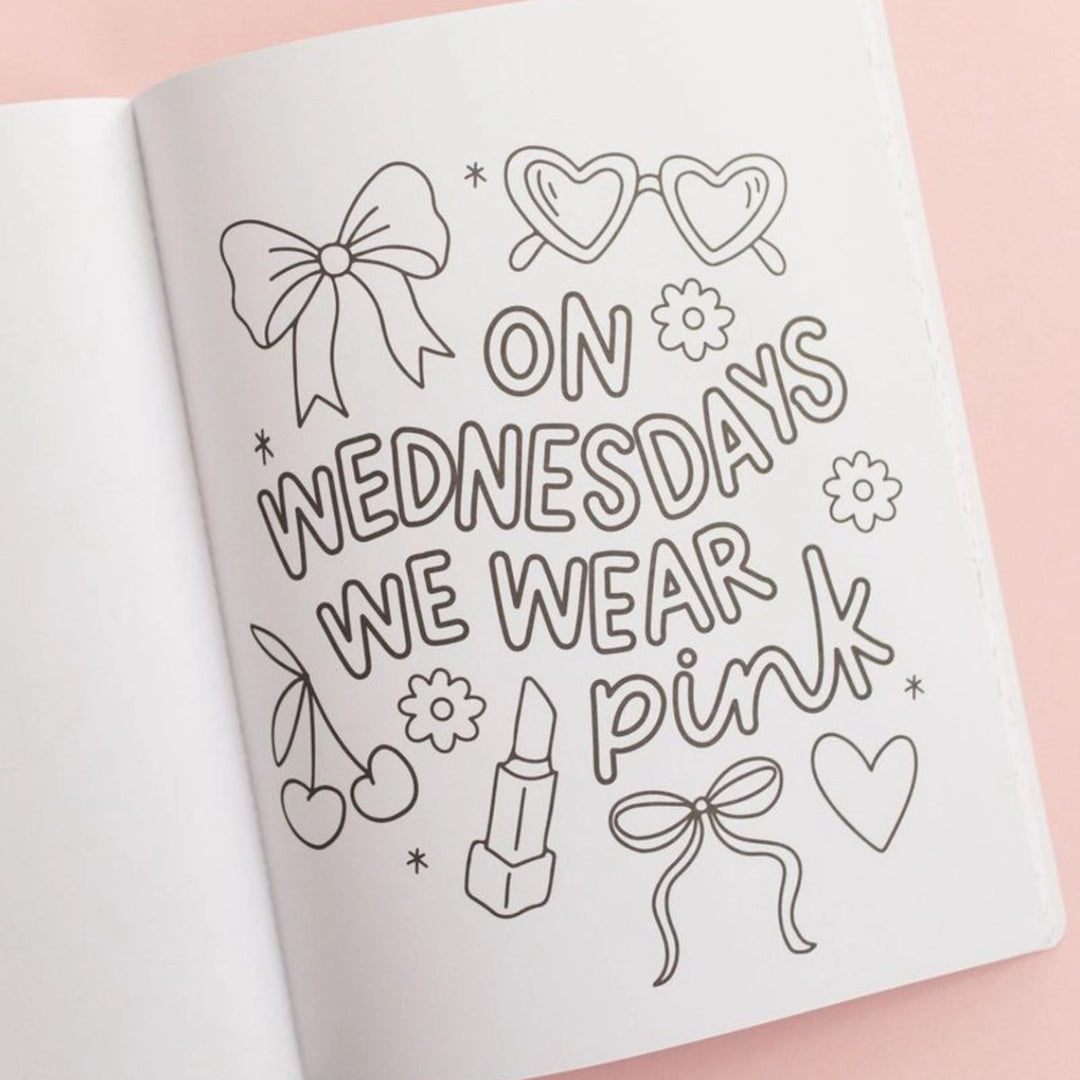 ON
WEDNESDAYS
WE WEAR
pink